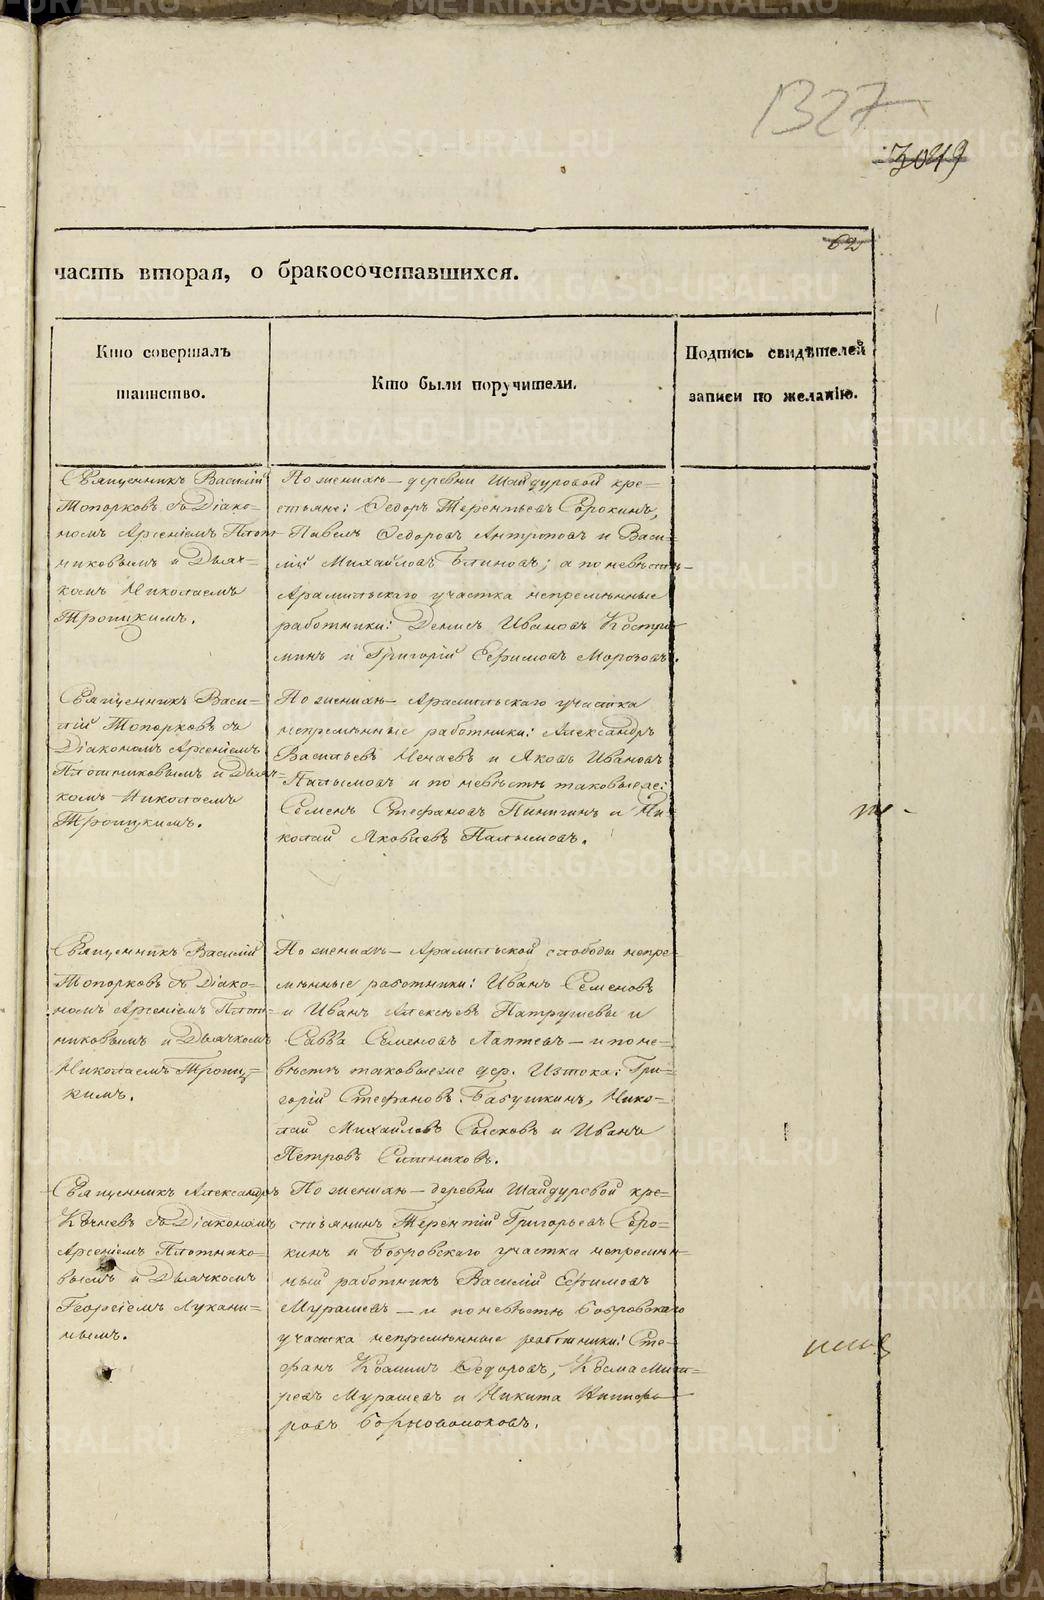 1327
3049
62
часть вторая, о бракосочетавшихся.
Кто совершалъ
таинство.
Кто были поручители.
Подпись свидѣтелей
записи по желанію.
Священникъ Василій
Топорковъ съ Діако-
номъ Арсеніемъ Плот-
никовымъ и Дьяч-
комъ Николаемъ
Троицкимъ.
По женихѣ — деревни Шайдуровой кре-
стьяне: Ѳедоръ Терентьевъ Сорокинъ,
Павелъ Ѳедоровъ Антроповъ и Васи-
лій Михайловъ Блиновъ; а по невѣстѣ —
Арамильскаго участка непремѣнные
работники: Денисъ Ивановъ Костро-
минъ и Григорій Ефимовъ Морозовъ.
Священникъ Васи-
лій Топорковъ съ
Діакономъ Арсеніемъ
Плотниковымъ и Дьяч-
комъ Николаемъ
Троицкимъ.
По женихѣ — Арамильскаго участка
непремѣнные работники: Александръ
Васильевъ Нечаевъ и Яковъ Ивановъ
Палымовъ и по невѣстѣ таковые же:
Семенъ Стефановъ Пинигинъ и Ни-
колай Яковлевъ Палымовъ.
Священникъ Василій
Топорковъ съ Діако-
номъ Арсеніемъ Плот-
никовымъ и Дьячкомъ
Николаемъ Троиц-
кимъ.
По женихѣ — Арамильской слободы непре-
мѣнные работники: Иванъ Семеновъ
и Иванъ Алексѣевъ Патрушевы и
Савва Семеновъ Лаптевъ — и по не-
вѣстѣ таковые же дер. Истока: Гри-
горій Стефановъ Бабушкинъ, Нико-
лай Михайловъ Сысковъ и Иванъ
Петровъ Ситниковъ.
Священникъ Александръ
Кочневъ съ Діакономъ
Арсеніемъ Плотнико-
вымъ и Дьячкомъ
Георгіемъ Лукани-
нымъ.
По женихѣ — деревни Шайдуровой кре-
стьянинъ Терентій Григорьевъ Соро-
кинъ и Бобровскаго участка непремѣн-
ный работникъ Василій Ефимовъ
Мурашевъ — и по невѣстѣ Бобровскаго
участка непремѣнные работники: Сте-
фанъ Ѳедоровъ, Косма
Мурашевъ и Никита
ровъ Борноволоковъ.
METRIKI.GASO-URAL.RU